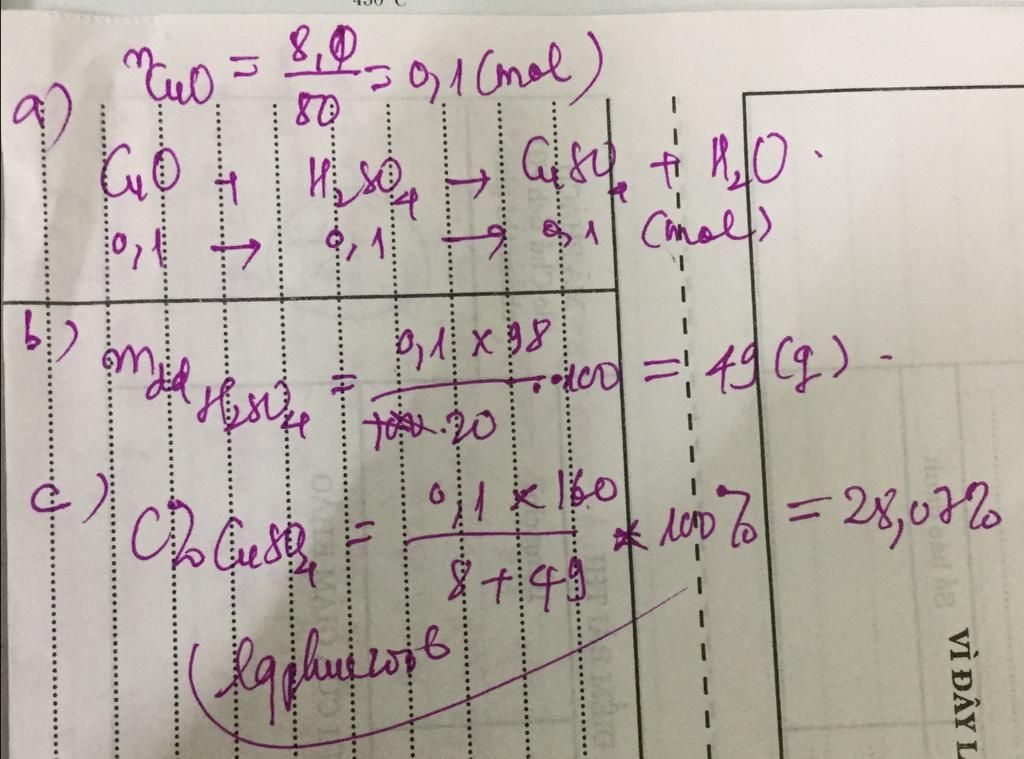 450°C
a) nCuO = 8,0/80 = 0,1 (mol)
CuO + H₂SO₄ → CuSO₄ + H₂O.
0,1 → 0,1 → 0,1 (mol)
b) mdd H₂SO₄ = 0,1 × 98/20 . 100 = 49 (g).
c) C% CuSO₄ = 0,1 × 160/8 + 49 × 100% = 28,07%
lqphuc2006
VÌ ĐÂY L